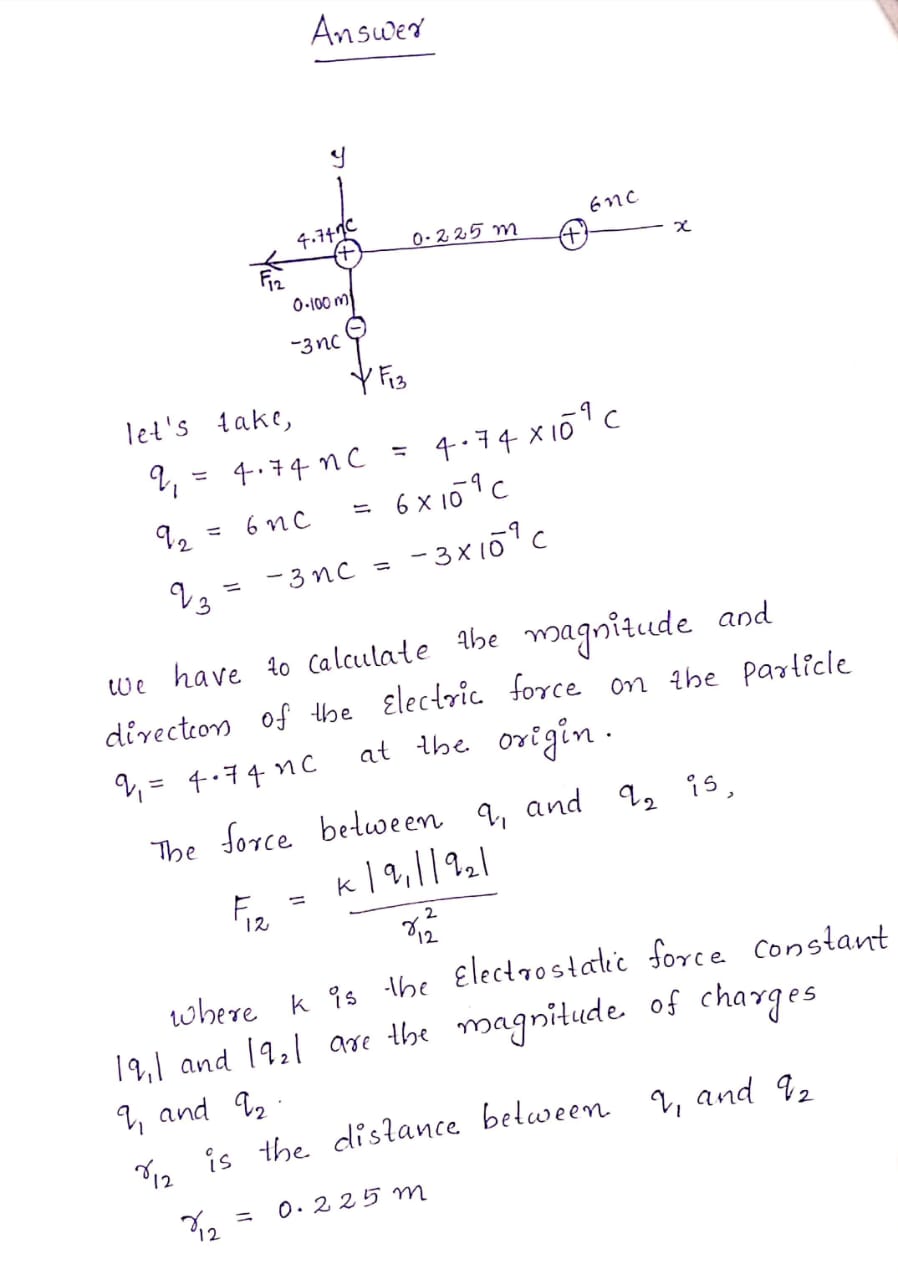 Answer
y
4.74nC
0.225 m
6nC
x
F₁₂
0.100 m
-3nC
F₁₃
let's take,
q₁ = 4.74 nC = 4.74 × 10⁻⁹ C
q₂ = 6nC = 6 × 10⁻⁹ C
q₃ = -3nC = -3 × 10⁻⁹ C
we have to calculate the magnitude and
direction of the Electric force on the particle
q₁ = 4.74 nC at the origin.
The force between q₁ and q₂ is,
F₁₂ = k|q₁||q₂|
r₁₂²
where k is the Electrostatic force constant
|q₁| and |q₂| are the magnitude of charges
q₁ and q₂.
r₁₂ is the distance between q₁ and q₂
r₁₂ = 0.225 m